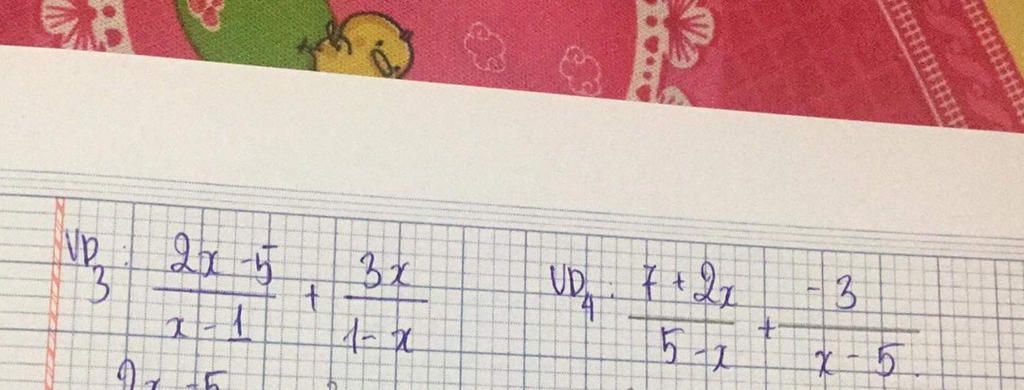 VD3: (2x - 5)/(x - 1) + 3x/(1 - x)
VD4: (7 + 2x)/(5 - x) + (-3)/(x - 5).
2x - 5